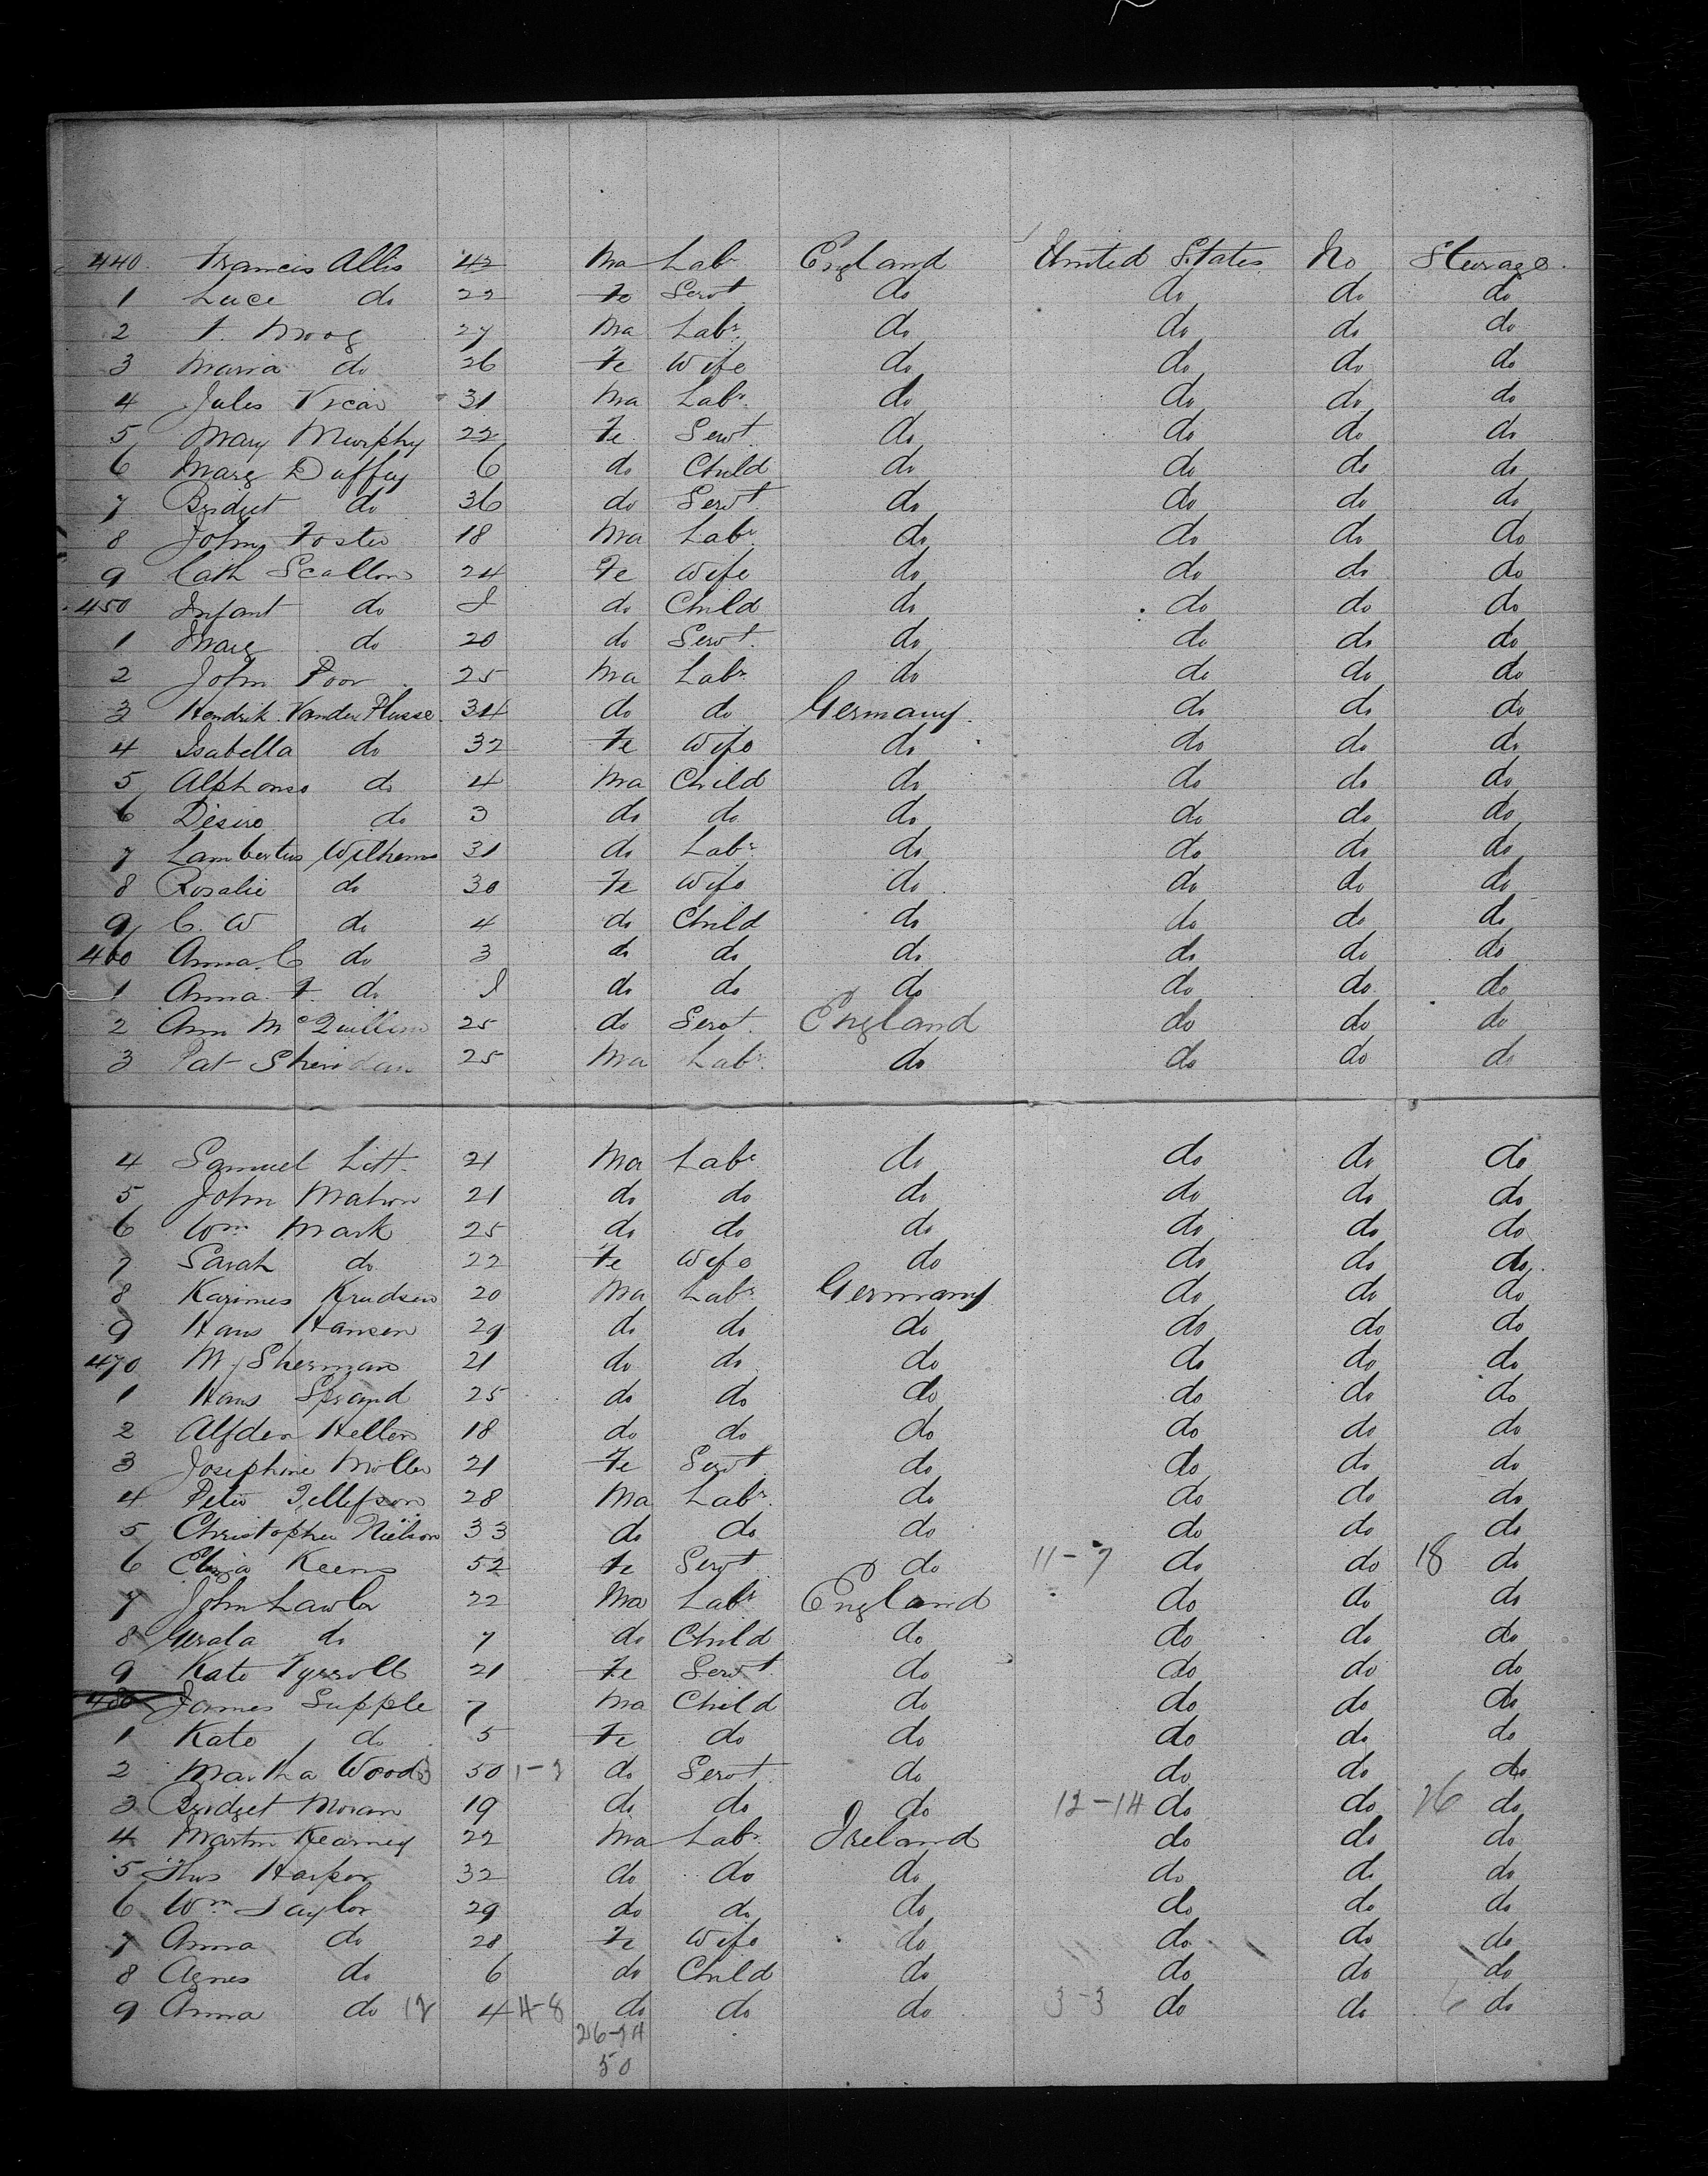 440. Francis Allis 42 Ma Labr England United States No Steerage.
1 Luce do 22 Fe Servt do do do do
2 F. Moog 27 Ma Labr do do do do
3 Maria do 26 Fe Wife do do do do
4 Jules 31 Ma Labr do do do do
5 Mary Murphy 22 Fe. Servt do do do do
6 Marg Duffey 6 do Child do do do do
7 Bridget do 36 do Servt. do do do do
8 John Foster 18 Ma Labr do do do do
9 Cath Scallon 24 Fe Wife do do do do
450 Infant do do Child do do do do
1 Marg do 20 do Servt. do do do do
2 John Poor 25 Ma Labr do do do do
3 Hendrik Vander Plusse 34 do do Germany. do do do
4 Isabella do 32 Fe Wife do do do do
5 Alphonse do 4 Ma Child do do do do
6 Désire do 3 do do do do do do
7 Lambertus Wilhems 31 do Labr do do do do
8 Rosalie do 30 Fe Wife do do do do
9 C. W do 4 do Child do do do do
460 Anna C do 3 do do do do do do
1 Anna F. do do do do do do do
2 Ann McQuillin 25 do Servt. England do do do
3 Pat Sheridan 25 Ma Labr do do do do
4 Samuel Litt. 21 Ma Labr do do do do
5 John Mahon 21 do do do do do do
6 Wm Mark 25 do do do do do do
7 Sarah do 22 Fe Wife do do do do.
8 Karimes Knudsen 20 Ma Labr Germany do do do
9 Hans Hansen 29 do do do do do do
470 M. Sherman 21 do do do do do do
1 Hans Strand 25 do do do do do do
2 Alfden Hellen 18 do do do do do do
3 Josephine Moller 21 Fe Servt do do do do
4 Peter Tellefson 28 Ma Labr. do do do do
5 Christopher Nielson 33 do do do do do do
6 Eliza Keens 52 Fe Servt do 11-7 do do 18 do
7 John Lawlor 22 Ma Labr England do do do
8 Gerald do 7 do Child do do do do
9 Kate Tyrroll 21 Fe Servt do do do do
480 James Supple 7 Ma Child do do do do
1 Kate do 5 Fe do do do do do
2 Martha Woods 50 do Servt. do do do do
3 Bridget Moran 19 do do do 12-14 do do 26 do
4 Martin Kearney 22 Ma Labr Ireland do do do
5 Thos Harper 32 do do do do do do
6 Wm Taylor 29 do do do do do do
7 Anna do 28 Fe Wife do do do do
8 Agnes do 6 do Child do do do do
9 Anna do 12 4 4-8 do do do 3-3 do do 6 do
50